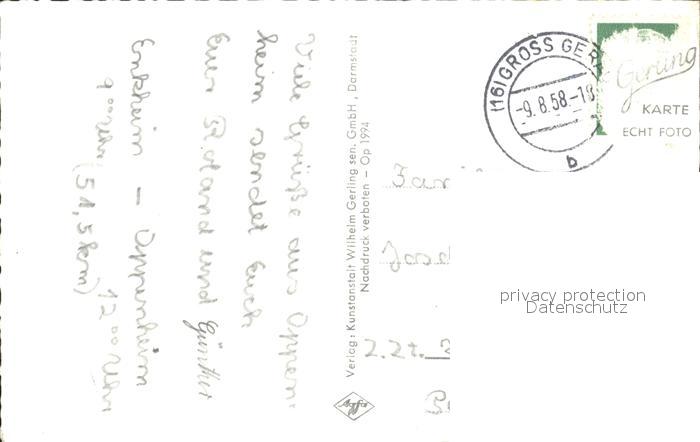 Viele Grüße aus Oppen-
heim sendet Euch
Euer Roland und Günther
Enkheim – Oppenheim
9⁰⁰ Uhr 12⁰⁰ Uhr
(51,5 km)
Verlag: Kunstanstalt Wilhelm Gerling sen. GmbH, Darmstadt
Nachdruck verboten – Op 1994
Agfa
(16) GROSS GER
-9.8.58.-18
b
Gerling
KARTE
ECHT FOTO
Fam
Jose
z.Zt.
privacy protection
Datenschutz